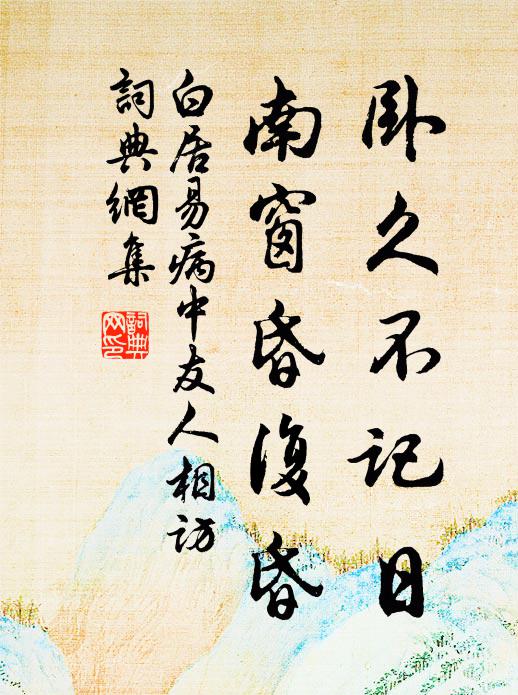 卧久不记日
南窗昏復昏
白居易病中友人相訪
詞典網集
詞典网印